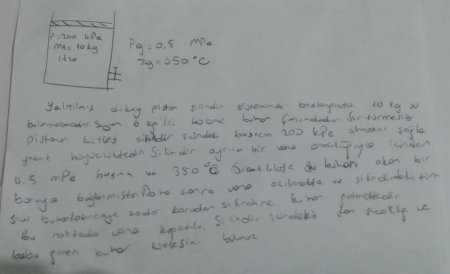 P=200 kPa
m=10kg
Pg=0.5 MPa
Tg=350°C
Yalıtılmış dikey piston silindir sisteminde başlangıçta 10 kg su
bulunmaktadır. Suyun 6 kg'lık bölümü buhar fazındadır. Sürtünmesiz
pistonun kütlesi silindir içindeki basıncın 200 kPa olmasını sağla
yacak büyüklüktedir. Silindir ayrıca bir vana aracılığıyla içinden
0.5 MPa basınç ve 350°C sıcaklıkta su buharı akan bir
boruya bağlanmıştır. Daha sonra vana açılmakta ve silindirdeki tüm
sıvı buharlaşıncaya kadar borudan silindire buhar girmektedir.
Bu noktada vana kapatılır. Silindir içindeki son sıcaklığı ve
giren buhar kütlesini bulunuz